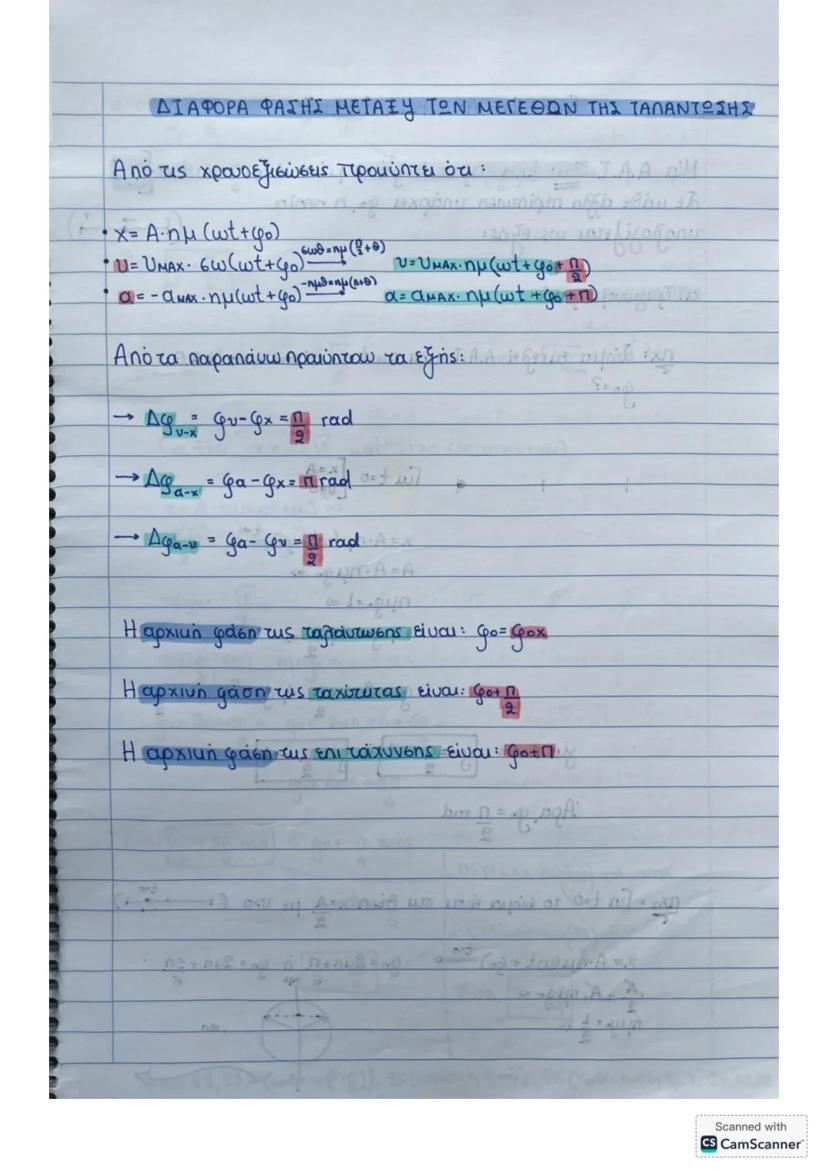 ΔΙΑΦΟΡΑ ΦΑΣΗΣ ΜΕΤΑΞΥ ΤΩΝ ΜΕΓΕΘΩΝ ΤΗΣ ΤΑΛΑΝΤΩΣΗΣ
Από τις χρονοεξισώσεις προκύπτει ότι:
• x = A·ημ(ωt+φ₀)
• υ = υMAX · συν(ωt+φ₀) συνθ=ημ(π/2+θ) → υ = υMAX·ημ(ωt+φ₀+π/2)
• a = -aMAX·ημ(ωt+φ₀) -ημθ=ημ(π+θ) → a = aMAX·ημ(ωt+φ₀+π)
Από τα παραπάνω προκύπτουν τα εξής:
→ Δφυ-x = φυ-φx = π/2 rad
→ Δφa-x = φa-φx = π rad
→ Δφa-υ = φa-φυ = π/2 rad
Η αρχική φάση της ταλάντωσης είναι: φ₀=φ₀x
Η αρχική φάση της ταχύτητας είναι: φ₀+π/2
Η αρχική φάση της επιτάχυνσης είναι: φ₀+π
Scanned with
CS CamScanner